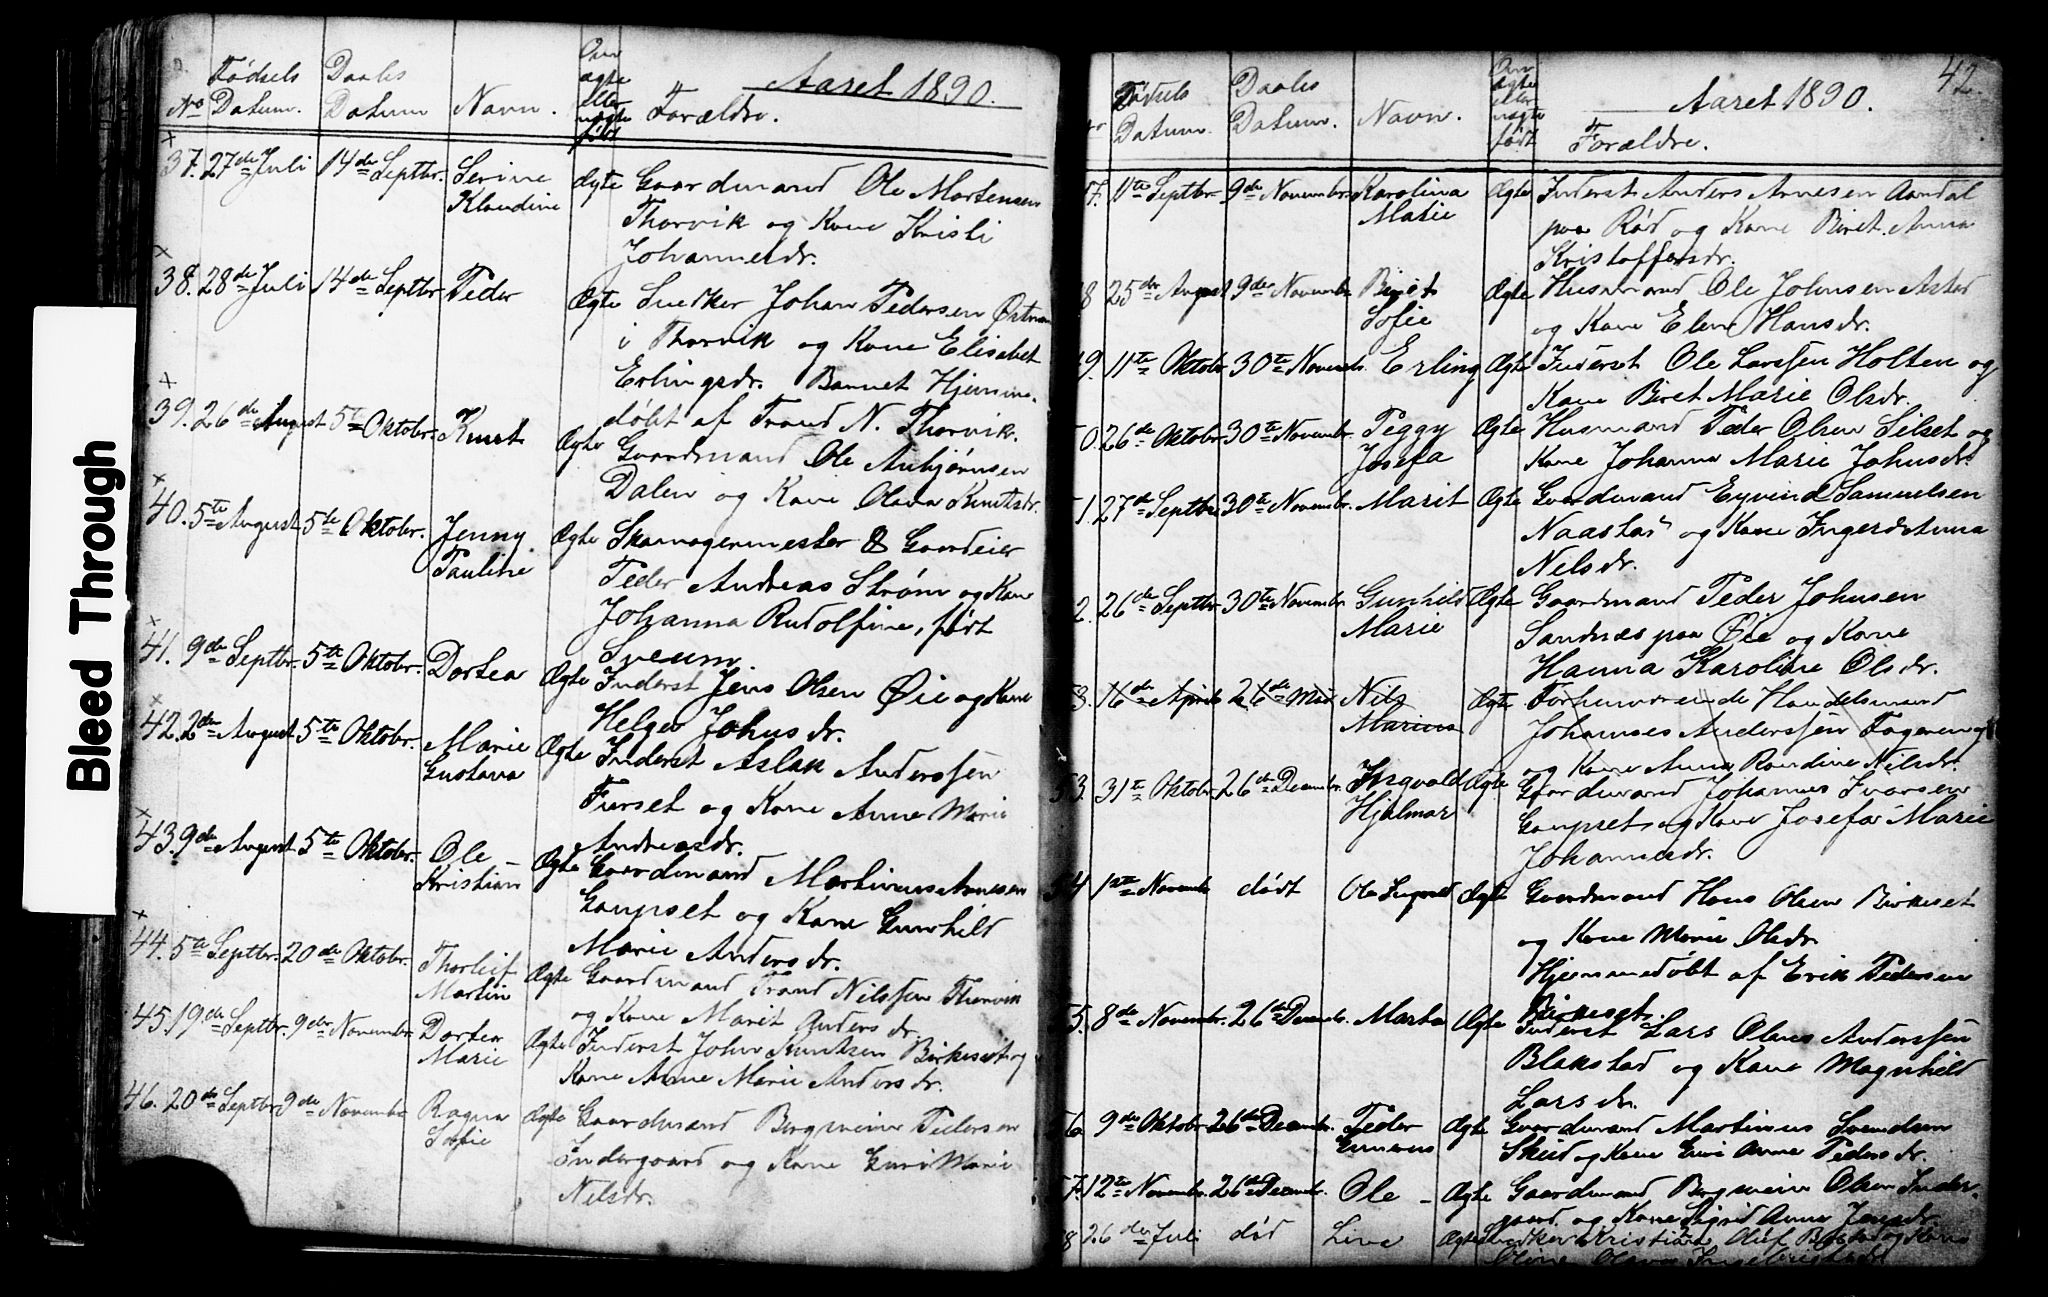 Bleed Through
No Fødsels Datum. Daabs Datum Navn. Om ægte eller uægte født Forældre. Aaret 1890.
37. 27de Juli 14de Septbr. Serine Klaudine Ægte Gaardmand Ole Mortensen
Thorvik og Kone Kristi
Johannesdr.
38. 28de Juli 14de Septbr Peder Ægte Snedker Johan Pedersen
i Thorvik og Kone Elisabet
Erlingsdr. Barnet Hjemme-
døbt af Trond N. Thorvik.
39. 26de August 5te Oktobr. Knut Ægte Gaardmand Ole
Dalen og Kone Olava Knutsdr.
40. 5te August 5te Oktobr. Jenny Pauline Ægte & Gaardeier
Peder Andreas Strøm og Kone
Johanna Rudolfine, født
Sveum
41. 9de Septbr. 5te Oktobr. Dortea Ægte Inderst Jens Olsen Øie og Kone
Helga Johnsdr.
42. 2den August 5te Oktobr. Marie Gustava Ægte Inderst Aslak Anderssen
Furset og Kone Anne Marie
Andreasdr.
43. 9de August 5te Oktobr. Ole Kristian Ægte Gaardmand Martinus Arnesen
Gaupset og Kone Gunhild
Marie Andersdr.
44. 5te Septbr. 20de Oktobr. Thorleif Martin Ægte Gaardmand Trond Nilssen Thorvik
og Kone Marit Andersdr.
45. 19de Septbr. 9de Novembr. Dortea Marie Ægte Inderst John Knutsen Birkeset og
Kone Anne Marie Andersdr.
46. 20de Septbr. 9de Novembr Ragna Sofie Ægte Gaardmand Pedersen
Indergaard og Kone Guri Marie
Nilsdr.
42.
Fødsels Datum. Daabs Datum. Navn. Om ægte eller uægte født Aaret 1890. Forældre.
7. 11te Septbr. 9de Novembr. Karolina Marie Ægte Inderst Anders Arnesen Aandal
paa Rød og Kone Beret Anna
Kristoffersdr.
8 25de August 9de Novembr Sofie Ægte Husmand Ole Johnsen Astad
og Kone Elen Hansdr.
9. 11te Oktobr. 30te Novembr. Erling Ægte Inderst Ole Larssen Holten og
Kone Beret Marie Olsdr.
0. 26de Oktobr. 30te Novembr. Peggy Josefa Ægte Husmand Peder Olsen Silset og
Kone Johanna Marie Johnsdr.
1. 27de Septbr. 30te Novembr. Marit Ægte Gaardmand Eyvind Samuelsen
Naastad og Kone Ingerdanna
Nelsdr.
2. 26de Septbr. 30te Novembr. Gunhild Marie Ægte Gaardmand Peder Johnsen
Sandnes paa Øie og Kone
Hanna Karoline Olsdr.
3. 16de April 26de Mai Nils Marius Ægte Forhenværende Handelsmand
Johannes Anderssen
og Kone Anna Randine Nilsdr.
53. 31te Oktobr. 26de Decembr. Ingvald Hjalmar Ægte Gaardmand Johannes Ivarsen
Gaupset og Kone Josefa Marie
Johannesdr.
54 1ste Novembr død Ole Ægte Gaardmand Hans Olsen Birkeset
og Kone Marie Olsdr.
Hjemmedøbt af Erik Pedersen
Birkeset.
5. 8de Novembr. 26de Decembr. Marta Ægte Inderst Lars Olaus Anderssen
Blakstad og Kone Magnhild
Larsdr.
56 9de Oktobr. 26de Decembr. Peder Ægte Gaardmand Martinus Svendsen
og Kone Guri Anne Pedersdr.
7. 12te Novembr. 26de Decembr. Ole Ægte Gaardmand Olsen Inder-
gaard og Kone Sigrid Anne
8 26de Juli død Line Ægte Snedker Kristian Oluf og Kone